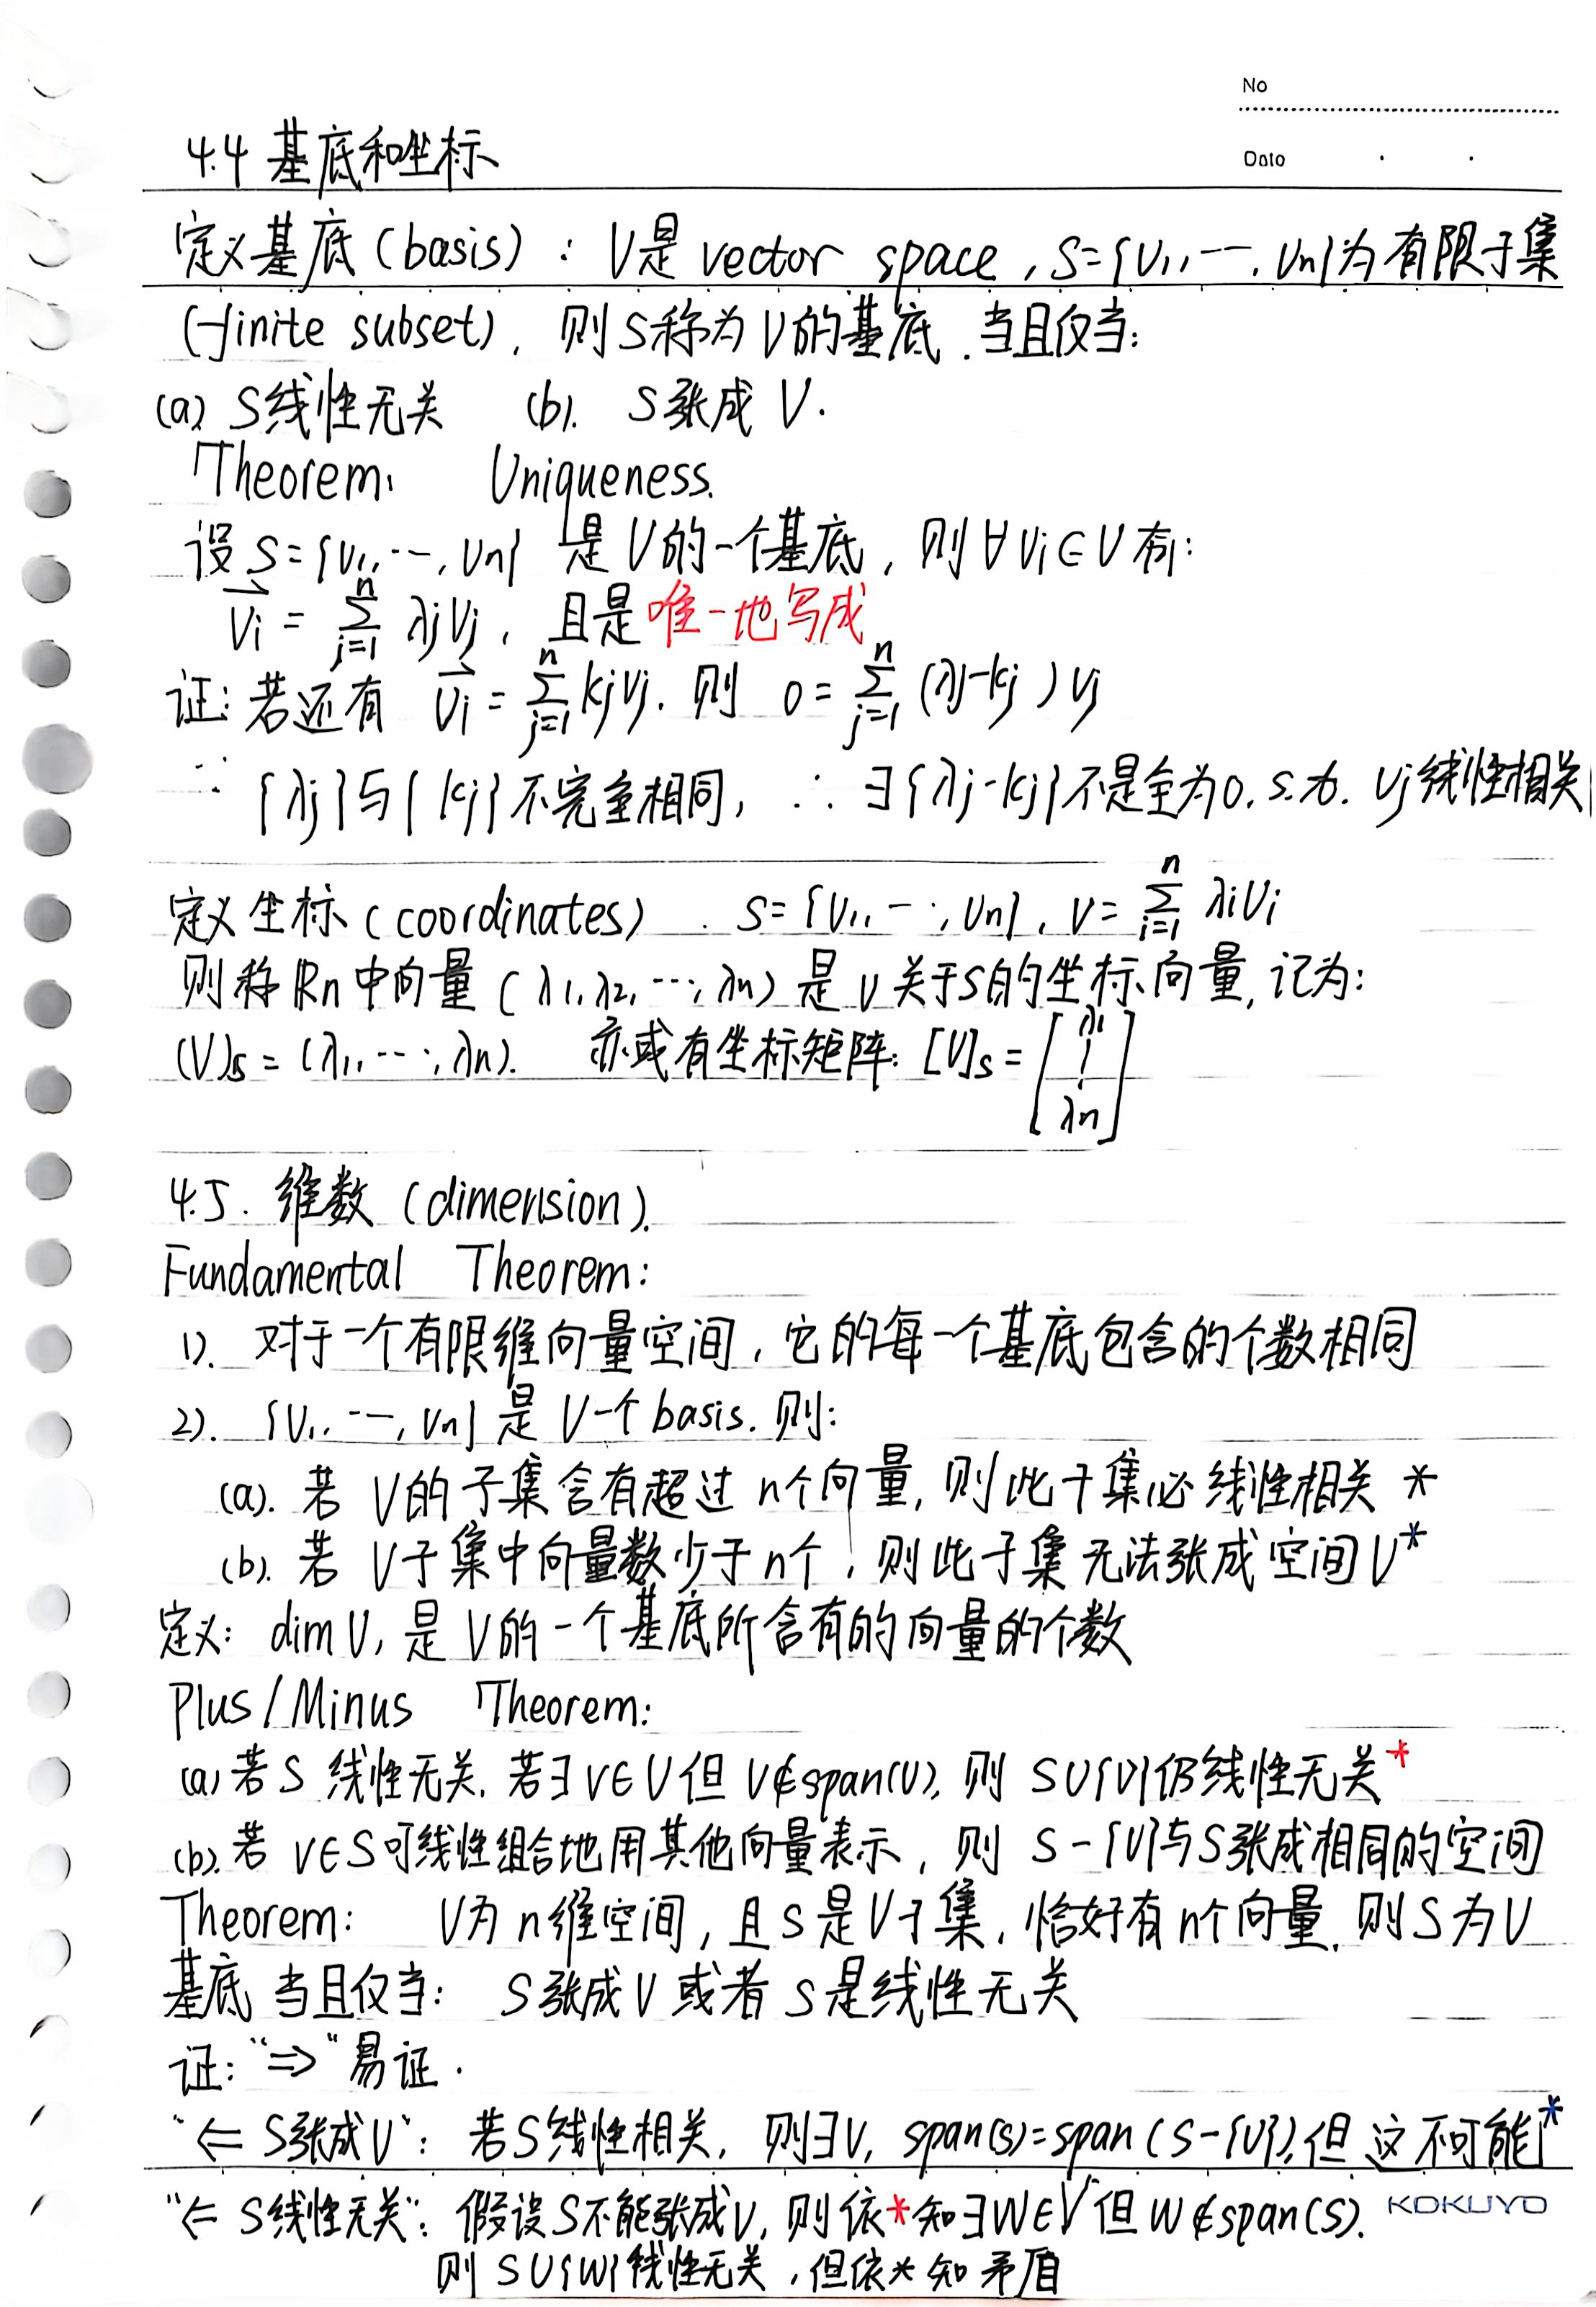 No
Date
4.4 基底和坐标
定义基底(basis): V是 vector space, S={v₁, …, vₙ}为有限子集
(finite subset), 则S称为V的基底, 当且仅当:
(a) S线性无关 (b). S张成 V.
Theorem: Uniqueness.
设 S={v₁, …, vₙ} 是V的一个基底, 则∀vᵢ∈V有:
$\vec{v_i} = \sum_{j=1}^{n} λ_j v_j$, 且是唯一地写成
证: 若还有 $\vec{v_i} = \sum_{j=1}^{n} k_j v_j$. 则 $0 = \sum_{j=1}^{n} (λ_j - k_j) v_j$
∵ {λj}与{kj}不完全相同, ∴ ∃{λj-kj}不是全为0. s.t. vj线性相关
定义坐标(coordinates). S={v₁, …, vₙ}, $v = \sum_{i=1}^{n} λ_i v_i$
则称 Rn 中向量 (λ1, λ2, …, λn) 是 v 关于S的坐标向量, 记为:
(v)s = (λ1, …, λn). 亦或有坐标矩阵: [v]s = $\begin{bmatrix} λ_1 \\ \vdots \\ λ_n \end{bmatrix}$
4.5. 维数 (dimension).
Fundamental Theorem:
1). 对于一个有限维向量空间, 它的每一个基底包含的个数相同
2). {v₁, …, vₙ} 是 V一个 basis. 则:
(a). 若 V的子集含有超过 n个向量, 则此子集必线性相关 *
(b). 若 V子集中向量数少于n个, 则此子集无法张成空间V*
定义: dim V, 是V的一个基底所含有的向量的个数
Plus/Minus Theorem:
(a) 若S 线性无关. 若∃v∈V但 v∉span(V), 则 S∪{v}仍线性无关*
(b). 若 v∈S可线性组合地用其他向量表示, 则 S-{v}与S张成相同的空间
Theorem: V为 n维空间, 且S是V子集, 恰好有n个向量. 则S为V
基底 当且仅当: S张成V 或者 S是线性无关
证: "⇒" 易证.
"⇐ S张成V": 若S线性相关, 则∃v, span(s)=span(S-{v}), 但这不可能*
"⇐ S线性无关": 假设S不能张成V, 则依*知∃W∈V但W∉span(S).
KOKUYO
则 S∪{W}线性无关, 但依*知矛盾